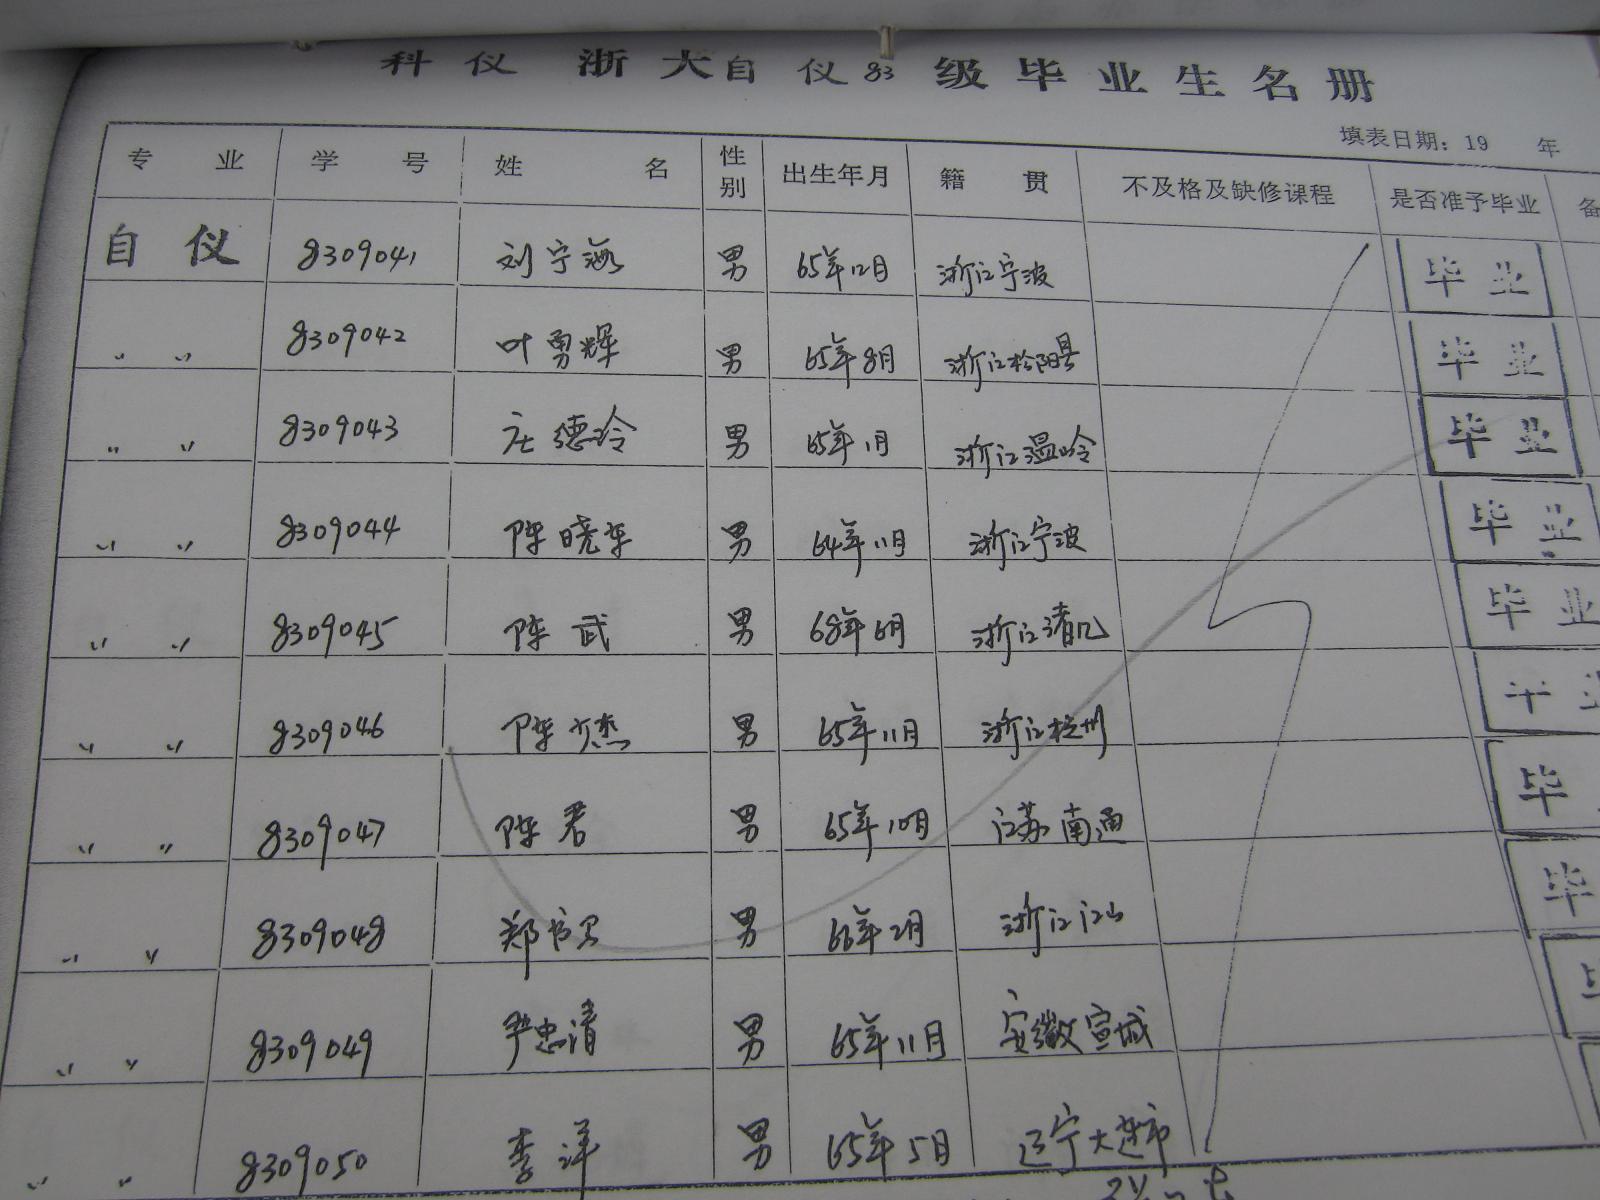 科仪 浙大自仪83级毕业生名册
填表日期：19 年
专业 学号 姓名 性别 出生年月 籍贯 不及格及缺修课程 是否准予毕业 备
自仪 8309041 刘宁海 男 65年12月 浙江宁波 毕业
〃 〃 8309042 叶勇辉 男 65年8月 浙江松阳县 毕业
〃 〃 8309043 庄德玲 男 65年1月 浙江温岭 毕业
〃 〃 8309044 陈晓华 男 64年11月 浙江宁波 毕业
〃 〃 8309045 陈武 男 68年6月 浙江 毕业
〃 〃 8309046 陈杰 男 65年11月 浙江杭州
〃 〃 8309047 陈君 男 65年10月 江苏南通 毕
〃 〃 8309048 郑 男 66年2月 浙江江山 毕
〃 〃 8309049 尹忠清 男 65年11月 安徽宣城
〃 〃 8309050 李洋 男 65年5月 辽宁大连市